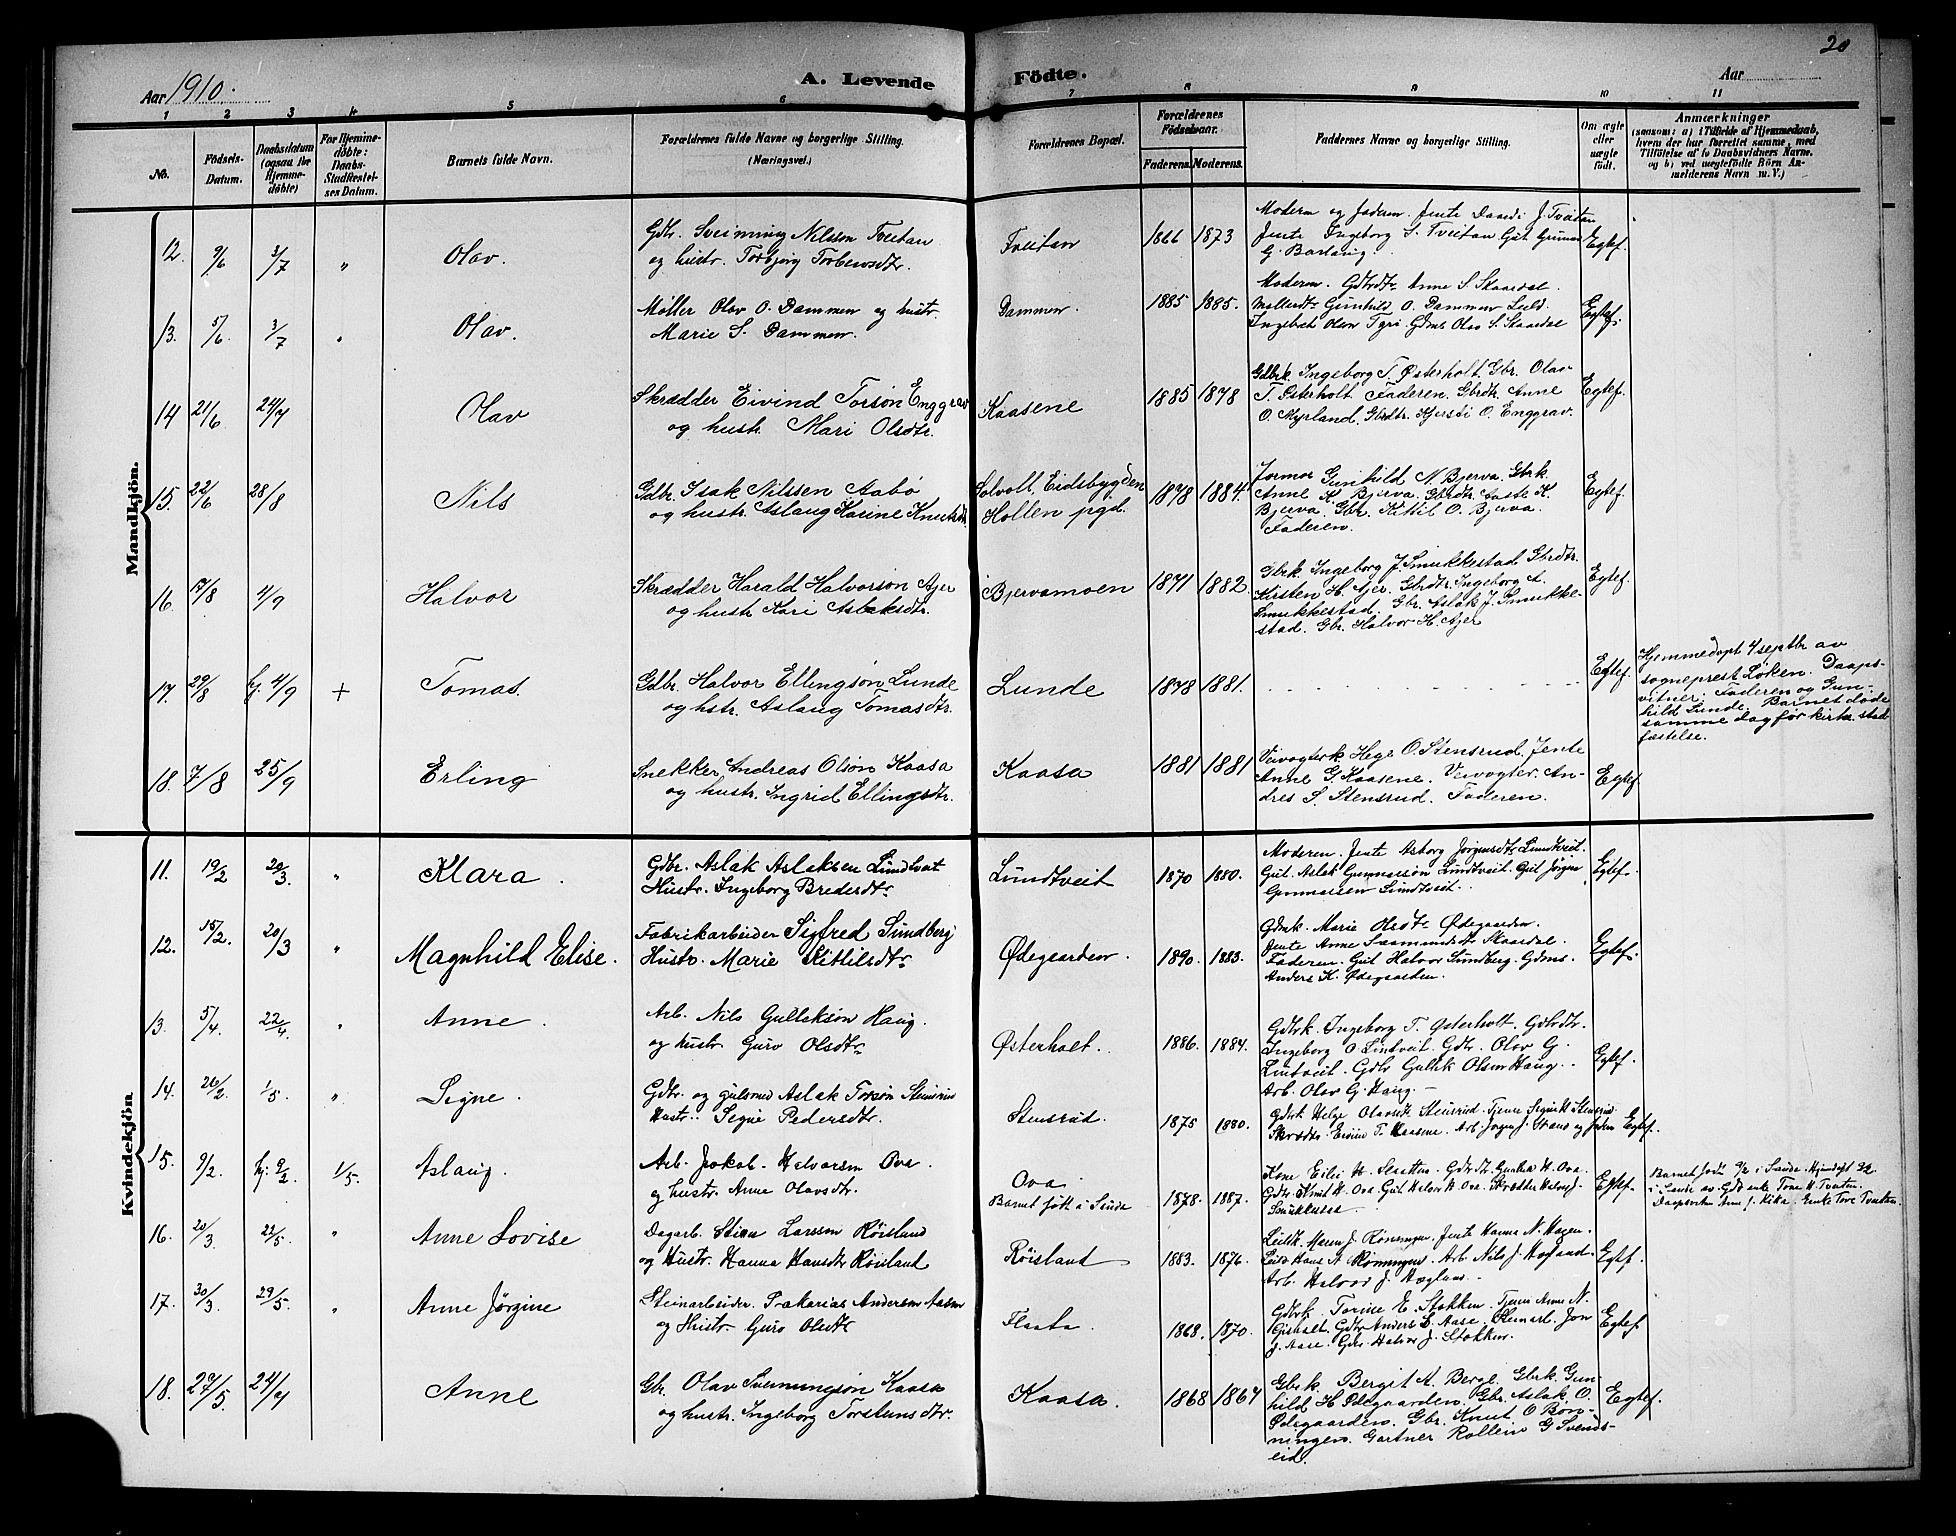 20
Aar 1910.
A. Levende
Födte.
Aar
1 2 3 4 5 6 7 8 9 10 11
No.
Födsels-
Datum.
Daabsdatum
(ogsaa for
Hjemme-
döbte)
For Hjemme-
döbte:
Daabs-
Stadfæstel-
ses Datum.
Barnets fulde Navn.
Forældrenes fulde Navne og borgerlige Stilling.
(Næringsvei.)
Forældrenes Bopæl.
Forældrenes
Födselsaar.
Faderens. Moderens.
Faddernes Navne og borgerlige Stilling.
Om ægte
eller
uægte
födt.
Anmærkninger
(saasom: a) i Tilfælde af Hjemmedaab,
hvem der har forrettet samme, med
Tilföielse af to Daabsvidners Navne,
og b) ved uægtefödte Börn An-
melderens Navn m. V.)
Mandkjön.
12. 9/6 3/7 " Olav.
Gdbr. Sveinung Nilssøn Tveitan
og hustr. Torbjørg
Tveitan 1866 1873
Moderen og Faderen. Jente Daardi J. Tveitan
Jente Ingeborg S. Tveitan Gut Gunnar
G. Barland.
Egtef.
13. 5/6 3/7 " Olav.
Møller Olav O. Dammen og hustr.
Marie S. Dammen.
Dammen. 1885 1885.
Moderen. Gdbrdtr. Anne S. Skaardal.
Møllerdtr. Gunhild O. Dammen
Ingebret Olsen Olav S. Skaardal
Egtef.
14 21/6 24/7 Olav
Skrædder Eivind Torsøn Enggrav
og hustr. Mari Olsdtr.
Kaasene 1885 1878
Gdbrk. Ingeborg T. Østerholt. Gbr. Olav
T. Østerholt. Faderen. Gbrdtr. Anne
O. Myrland. Gbrdtr. Kjersti O. Enggrav.
Egtef.
15. 22/6 28/8 Nils
Gdbr. Isak Nilssen Aabø
og hustr. Aslaug Karine Knutsdtr.
Solvolt, Eidsbygden
Hollen pgd. 1878 1884.
Jormor Gunhild N. Bjerva. Gbrk.
Anne K. Bjerva. Gbrdtr. Aaste K.
Bjerva. Gbr. Kittil O. Bjerva.
Faderen.
Egtef.
16. 17/8 4/9 Halvor
Skrædder Harald Halvorsøn Ajer
og hustr. Kari Aslaksdtr.
Bjervamoen 1871 1882.
Gbrk. Ingeborg J. Smukkestad Gbrdtr.
Kirsten H. Ajer. Gbrdtr. Ingeborg A.
Smukkestad. Gbr. Aslak J. Smukke-
stad. Gbr. Halvor H. Ajer
Egtef.
17. 29/8 hj. 4/9 + Tomas.
Gdbr. Halvor Ellingsøn Lunde
og hstr. Aslaug Tomasdtr.
Lunde 1878 1881.
Egtef.
Hjemmedøpt 4 septbr av
sogneprest Løken. Daaps-
vitner: Faderen og Gun-
hild Lunde. Barnet døde
samme dag før kirk. stad
fæstelse.
18. 7/8 25/9 Erling
Snekker Andreas Olsøn Kaasa
og hustr. Ingrid Ellingsdtr.
Kaasa 1881 1881
Veivogterk. Hege O. Stensrud. Jente
Anne G. Kaasene. Veivogter. An-
dres S. Stensrud. Faderen.
Egtef.
Kvindekjön
11. 19/2 20/3. " Klara.
Gdbr. Aslak Aslaksen Lundtveit
Hustr. Ingeborg Bredesdtr.
Lundtveit 1870 1880.
Moderen. Jente Asborg Jørgensdtr. Lundtveit.
Gut. Aslak Gunnarsøn Lundtveit. Gut Jørgen
Gunnarsen Lundtveit.
Egtef.
12. 15/2. 20/3 " Magnhild Elise.
Fabrikarbeider Sigfred Sundberg
Hustr. Marie Kittilsdtr.
Ødegaarden. 1890. 1883.
Gdbrk. Marie Olsdtr. Ødegaarden.
Jente Anne Sæmundsdtr. Skaardal.
Faderen. Gut Halvor Sundberg. Gdms.
Anders K. Ødegaarden.
Egtef.
13. 5/4. 22/4. " Anne.
Arb. Nils Gulleksøn Haug.
og hustr. Guro Olsdtr.
Østerholt. 1886. 1884.
Gdbrk. Ingeborg T. Østerholt. Gdbrdtr.
Ingeborg O. Lintveit. Gdbr. Olav G.
Lintveit. Gdbr. Gullik Olsen Haug.
Arb. Olav G. Haug.
Egtef.
14. 26/2. 1/5. " Signe.
Gdbr. og gulsmed Aslak Torsøn Stensrud
Hustr.: Signe Pedersdtr.
Stensrud. 1875 1880.
Gdbrk. Helge Olavsdtr. Stensrud. Tjener Signe Stensrud
Skrædder Eivind T. Kaasene. Arb. Jørgen J. Strand og Faderen
Egtef.
15. 9/2. hj. 9/2. 1/5. Aslaug.
Arb. Jakob Halvorsen Ova.
og hustr. Anne Olavsdtr.
Ova.
Barnet født i Sauda 1878. 1887.
Kone Eilev H. Slaatten. Gdbrdtr. Gunhild H. Ova.
Gdbr. Knut H. Ova Gut Halvor H. Ova. Skrædder Halvor J.
Egtef.
Barnet født 9/2 i Sauda. Hjemdøpt 9/2.
i Saude av Gdb. enke Tone H. Tveiten.
16. 20/3. 22/5. " Anne Lovise
Dagarb. Stian Larssen Røisland
og Hustr. Hanna Hansdtr. Røisland
Røisland 1883. 1876.
Leilk. Maren J. Rønningen. Jente Hanna N. Hagen.
Leil. Hans A. Rønningen. Arb. Nils J. Høgland.
Arb. Halvor J. Høgland.
Egtef.
17. 30/3. 29/5. " Anne Jørgine
Steinarbeider. Sakarias Andersen Aasen
og Hustr. Guro Olsdtr.
Flaata. 1868. 1870.
Gdbrk. Torine E. Stokken. Tjener Anne N.
Gisholt. Gdbr. Anders S. Aase. Stenarb. Jon
J. Aase. Gdbr. Halvor J. Stokken.
Egtef.
18. 27/5 24/7 Anne
Gbr. Olav Sveinungsøn Kaasa
og hustr. Ingeborg Torstensdtr.
Kaasa. 1868 1867
Gbrk. Bergit A. Berge. Gbrk. Gun-
hild H. Ødegaarden. Gbr. Aslak O.
Ødegaarden. Gbr. Knut O. Røn-
ningen. Gartner Rollein G. Svends-
eid.
Egtef.